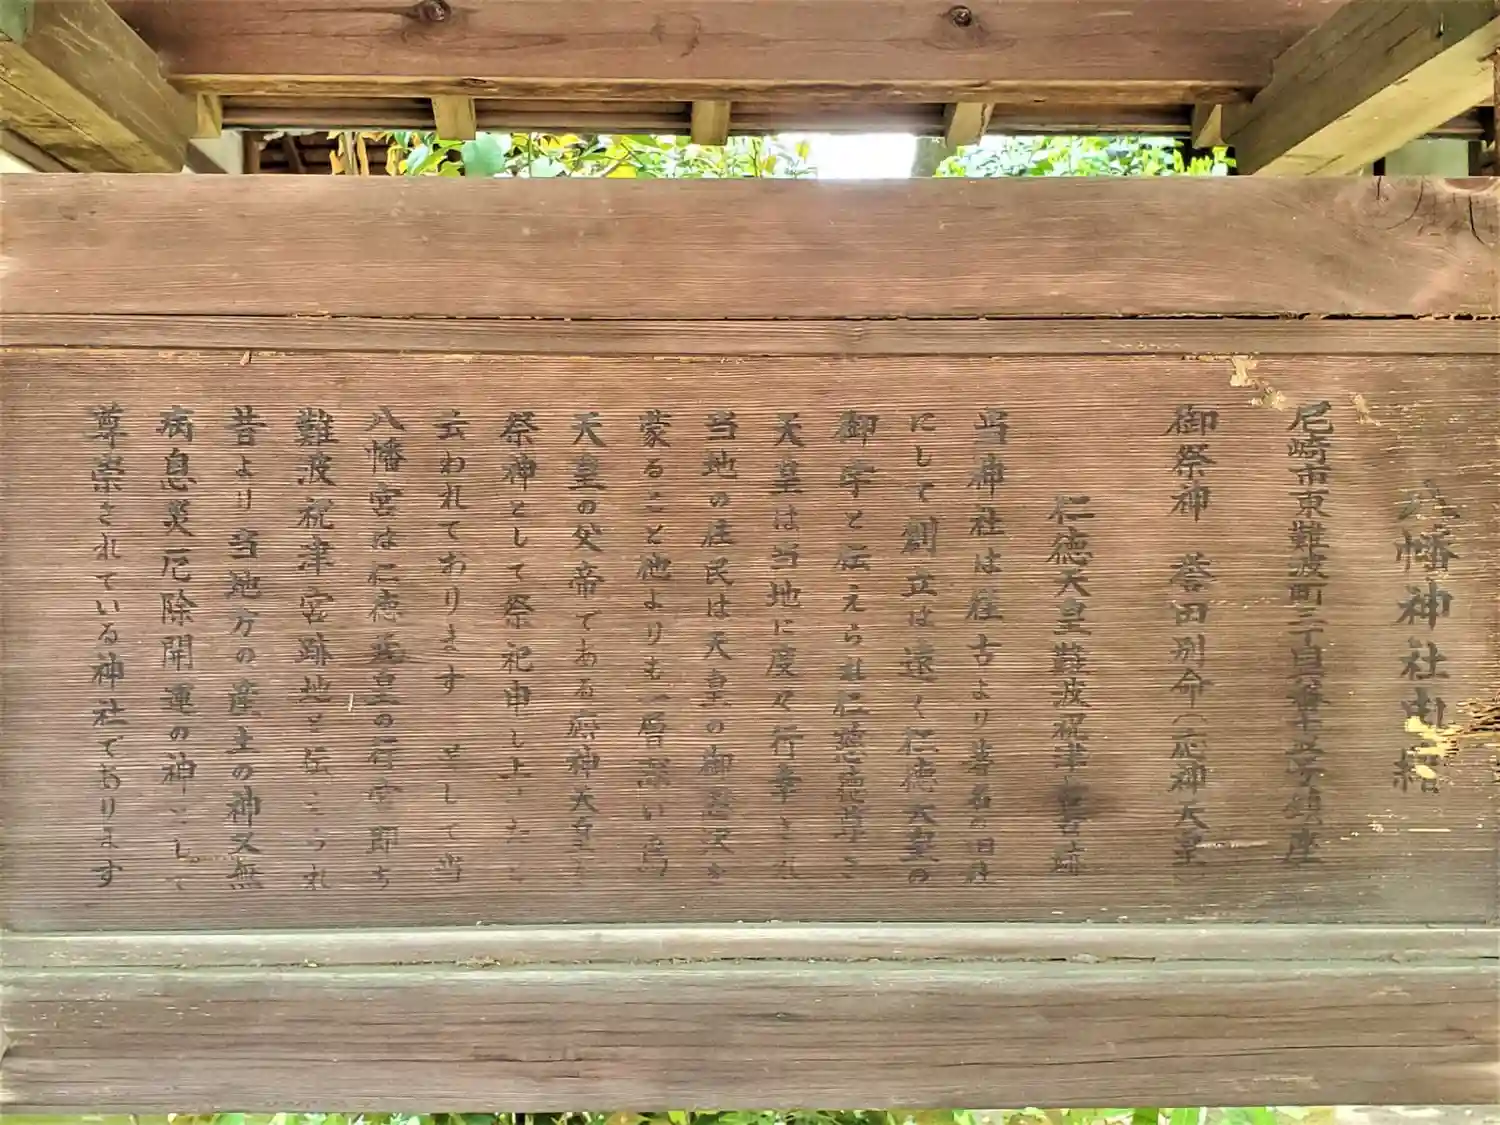 八幡神社由緒
尼崎市東難波町三丁目 鎮座
御祭神 誉田別命(応神天皇)
仁徳天皇難波祝津宮旧跡
当神社は往古より著名の旧社
にして創立は遠く仁徳天皇の
御宇と伝えられ仁慈徳厚き
天皇は当地に度々行幸され
当地の住民は天皇の御恩沢を
蒙ること他よりも一層深い為
天皇の父帝である応神天皇を
祭神として祭祀申し上げたと
云われております そして当
八幡宮は仁徳天皇の行宮即ち
難波祝津宮跡地と伝えられ
昔より当地方の産土の神又無
病息災厄除開運の神として
尊崇されている神社であります